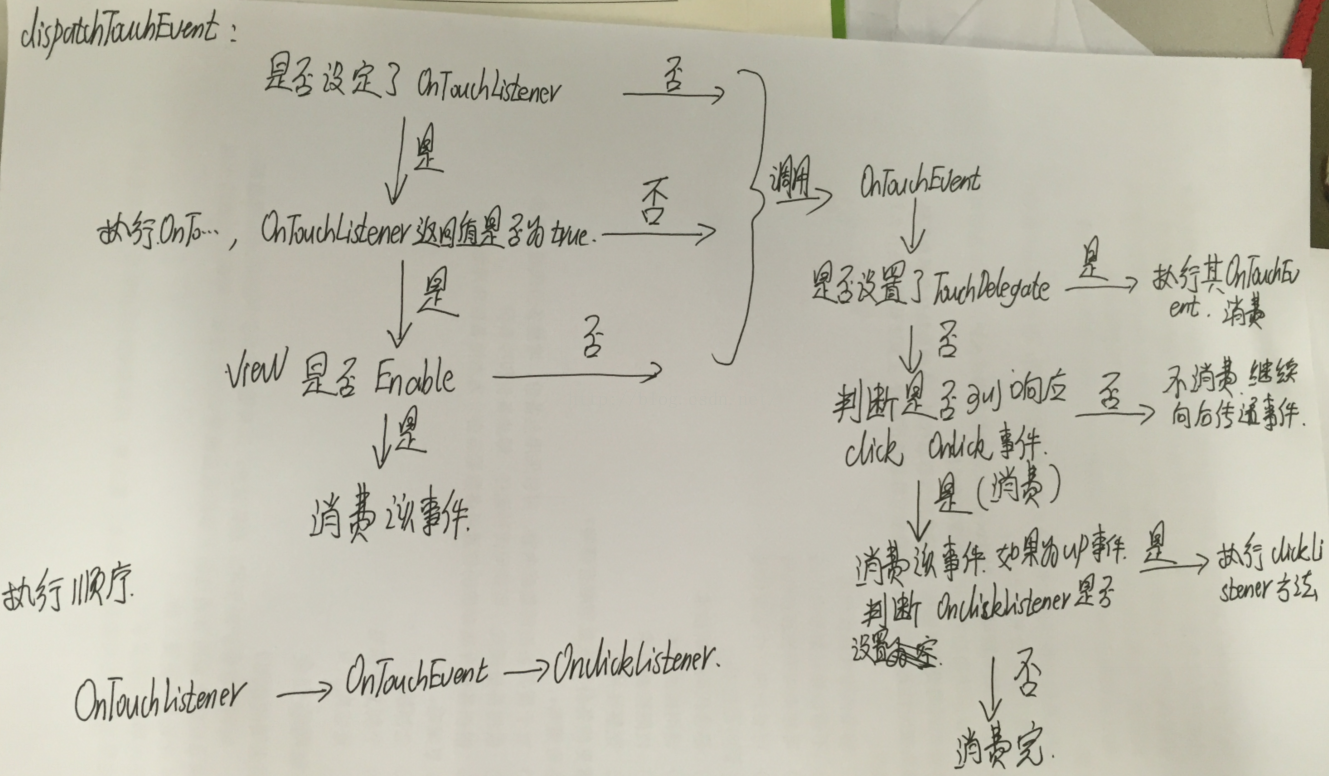 dispatchTouchEvent:
是否设定了 OnTouchListener
否
是
执行OnTo..., OnTouchListener返回值是否为true.
否
是
View 是否 Enable
否
是
消费该事件.
调用
OnTouchEvent
是否设置了TouchDelegate
是
执行其OnTouchEv
ent. 消费
否
判断是否可以响应
click, Onlick事件.
否
不消费.继续
向后传递事件.
是(消费)
消费该事件.如果为up事件.
判断 OnclickListener是否
设置
是
执行clickLi
stener方法
否
消费完.
执行顺序.
OnTouchListener → OnTouchEvent → OnclickListener.